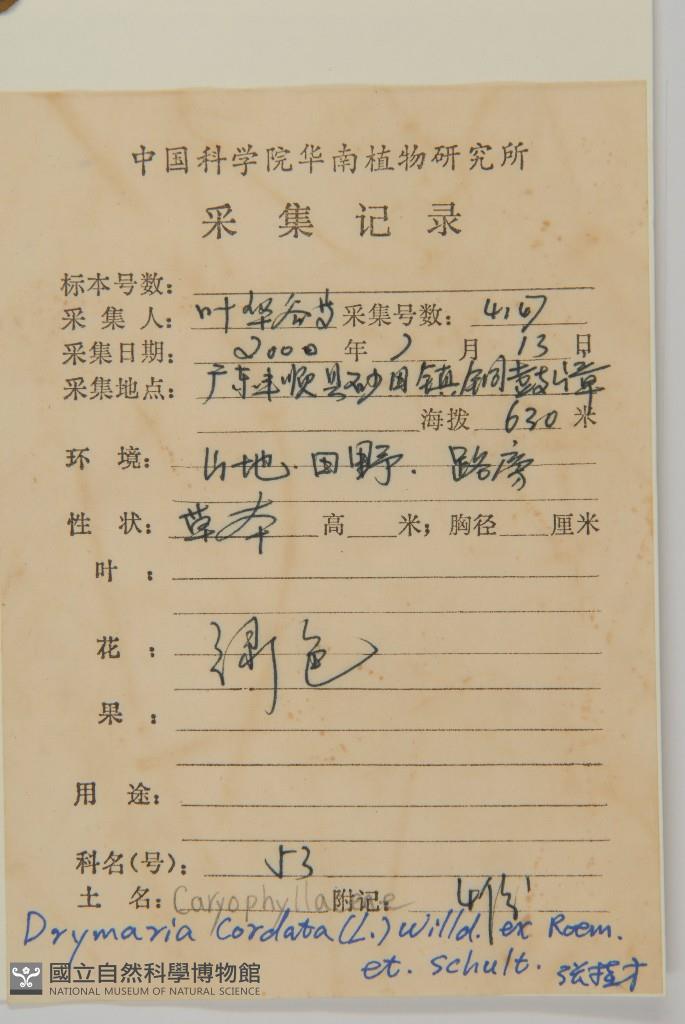 中国科学院华南植物研究所
采集记录
标本号数：
采集人：叶华谷等 采集号数：4167
采集日期：2000年7月13日
采集地点：广东丰顺县砂田镇铜鼓嶂
海拨 630 米
环境：山地．田野．路旁
性状：草本 高 米；胸径 厘米
叶：
花：绿色
果：
用途：
科名(号)：53
土名：Caryophyllaceae 附记：4份
Drymaria Cordata (L.) Willd. ex Roem.
et. Schult. 张桂才
國立自然科學博物館
NATIONAL MUSEUM OF NATURAL SCIENCE